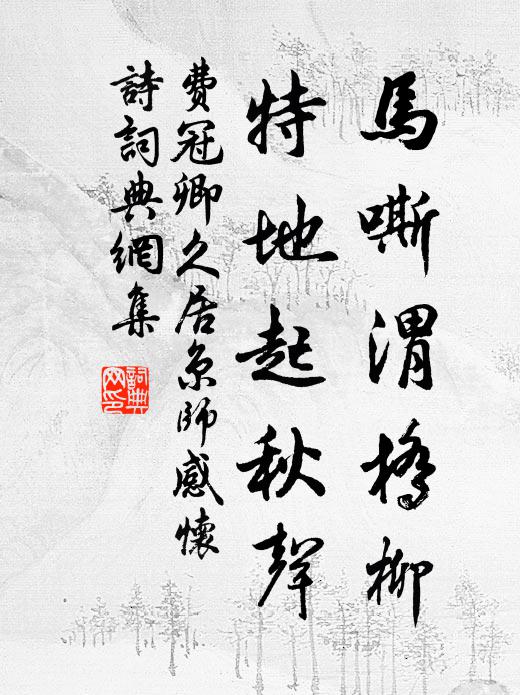 馬嘶渭橋柳
特地起秋聲
費冠卿久居京師感懷
詩詞典網集
詞典
网印